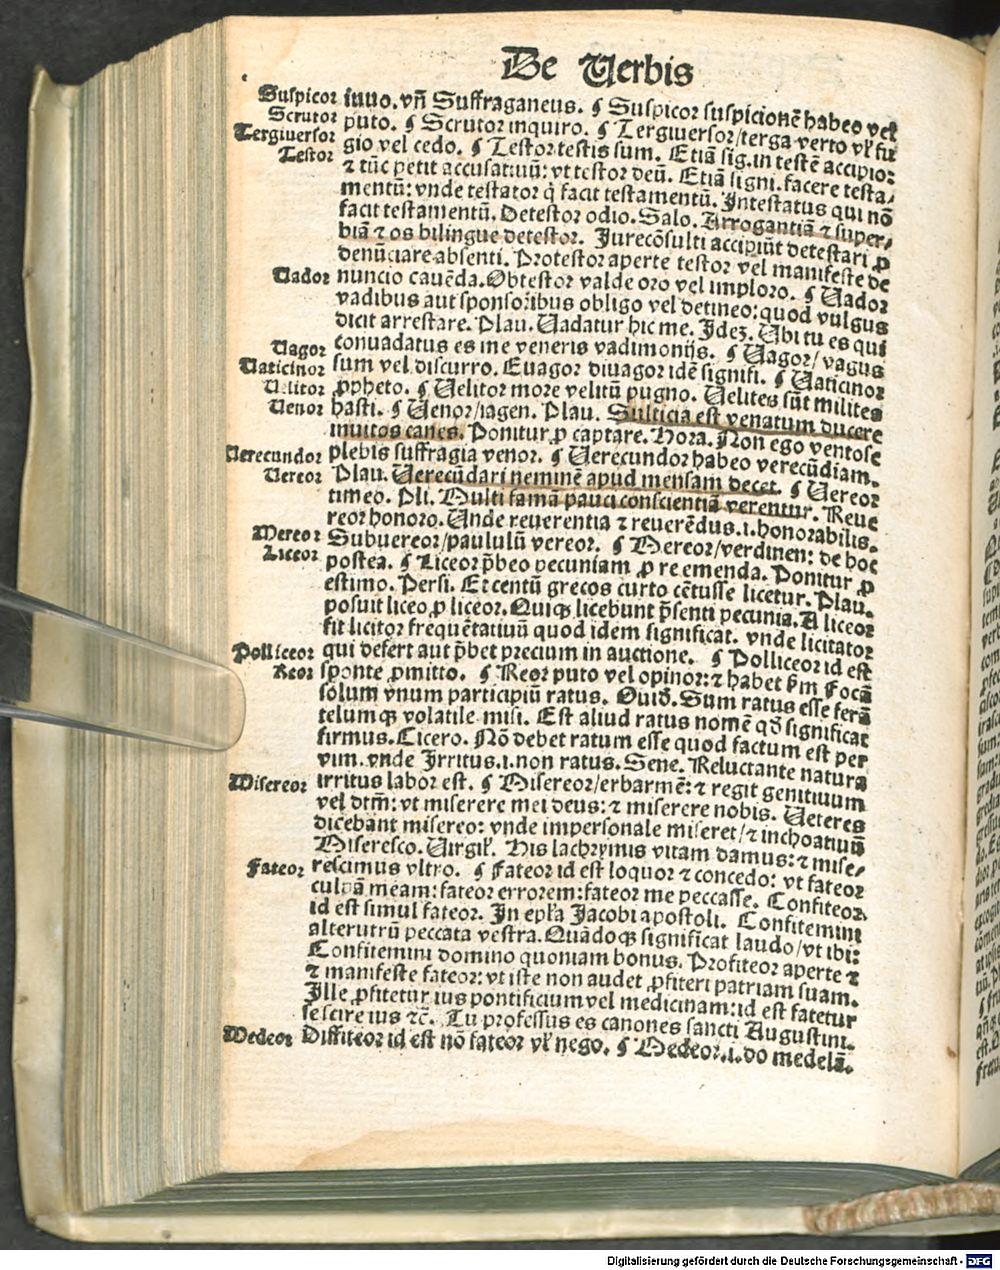 De Verbis
Suspicor iuuo. vñ Suffraganeus. ¶ Suspicor suspicionē habeo vel
Scrutor puto. ¶ Scrutor inquiro. ¶ Tergiuersor/terga verto vl' fu
Tergiuersor gio vel cedo. ¶ Testor testis sum. Etiā sig. in testē accipio:
Testor ⁊ tūc petit accusatiuū: vt testor deū. Etiā signi. facere testa/
mentū: vnde testator q̇ facit testamentū. Intestatus qui nō
facit testamentū. Detestor odio. Salo. Arrogantiā ⁊ super/
biā ⁊ os bilingue detestor. Jurecōsulti accipiūt detestari ꝓ
denūciare absenti. Protestor aperte testor vel manifeste de
Vador nuncio cauēda. Obtestor valde oro vel imploro. ¶ Vador
vadibus aut sponsoribus obligo vel detineo: quod vulgus
dicit arrestare. Plau. Vadatur hic me. Idez. Vbi tu es qui
Vagor conuadatus es me veneris vadimonijs. ¶ Vagor/ vagus
Vaticinor sum vel discurro. Euagor diuagor idē signifi. ¶ Vaticinor
Velitor ꝓpheto. ¶ Velitor more velitū pugno. Velites sūt milites
Venor hasti. ¶ Venor/iagen. Plau. Stulticia est venatum ducere
inuitos canes. Ponitur ꝓ captare. Hora. Non ego ventose
Verecundor plebis suffragia venor. ¶ Verecundor habeo verecūdiam.
Vereor Plau. Verecūdari neminē apud mensam decet. ¶ Vereor
timeo. Pli. Multi famā pauci conscientiā verentur. Reue
reor honoro. Unde reuerentia ⁊ reuerēdus .i. honorabilis.
Mereor Subuereor/paululū vereor. ¶ Mereor/verdinen: de hoc
Liceor postea. ¶ Liceor p̄beo pecuniam ꝓ re emenda. Ponitur ꝓ
estimo. Persi. Et centū grecos curto cētusse licetur. Plau.
posuit liceo ꝓ liceor. Quiqȝ licebunt p̄senti pecunia. A liceor
fit licitor frequētatiuū quod idem significat. vnde licitator
Polliceor qui defert aut p̄bet precium in auctione. ¶ Polliceor id est
Reor sponte ꝓmitto. ¶ Reor puto vel opinor: ⁊ habet
solum vnum participiū ratus. Ouid. Sum ratus esse ferā
telumqȝ volatile misi. Est aliud ratus nomē qd̄ significat
firmus. Cicero. Nō debet ratum esse quod factum est per
vim. vnde Irritus .i. non ratus. Sene. Reluctante natura
Misereor irritus labor est. ¶ Misereor/erbarmē: ⁊ regit genitiuum
vel dtm̄: vt miserere mei deus: ⁊ miserere nobis. Veteres
dicebant misereo: vnde impersonale miseret/⁊ inchoatiuū
Miseresco. Virgil'. His lachrymis vitam damus: ⁊ mise/
Fateor rescimus vltro. ¶ Fateor id est loquor ⁊ concedo: vt fateor
culpā meam: fateor errorem: fateor me peccasse. Confiteor
id est simul fateor. In epl'a Jacobi apostoli. Confitemini
alterutrū peccata vestra. Quādoqȝ significat laudo/vt ibi:
Confitemini domino quoniam bonus. Profiteor aperte ⁊
⁊ manifeste fateor: vt iste non audet ꝓfiteri patriam suam.
Ille ꝓfitetur ius pontificium vel medicinam: id est fatetur
se scire ius ⁊c̄. Tu professus es canones sancti Augustini.
Medeor Diffiteor id est nō fateor vl' nego. ¶ Medeor .i. do medelā.
Digitalisierung gefördert durch die Deutsche Forschungsgemeinschaft - DFG